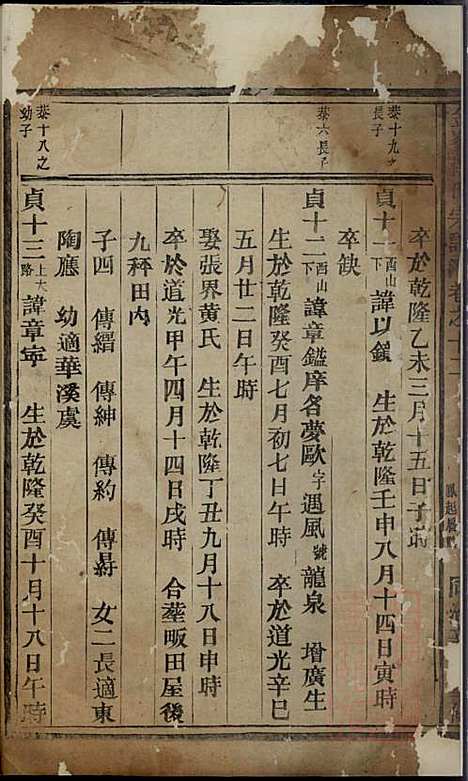 卒於乾隆乙未三月十五日子時
恭十九之長子
貞十一西山下 諱以鎮 生於乾隆壬申八月十四日寅時
卒缺
恭六長子
貞十二西山下 諱章鎰庠名夢歐字遇風號龍泉 增廣生
生於乾隆癸酉七月初七日午時 卒於道光辛巳
五月廿二日午時
娶張界黃氏 生於乾隆丁丑九月十八日申時
卒於道光甲午四月十四日戌時 合塟畈田屋後
九秤田內
子四 傳縉 傳紳 傳約 傳 女二長適東
陶應 幼適華溪虞
恭十八之幼子
貞十三上大路 諱章寧 生於乾隆癸酉十月十八日午時